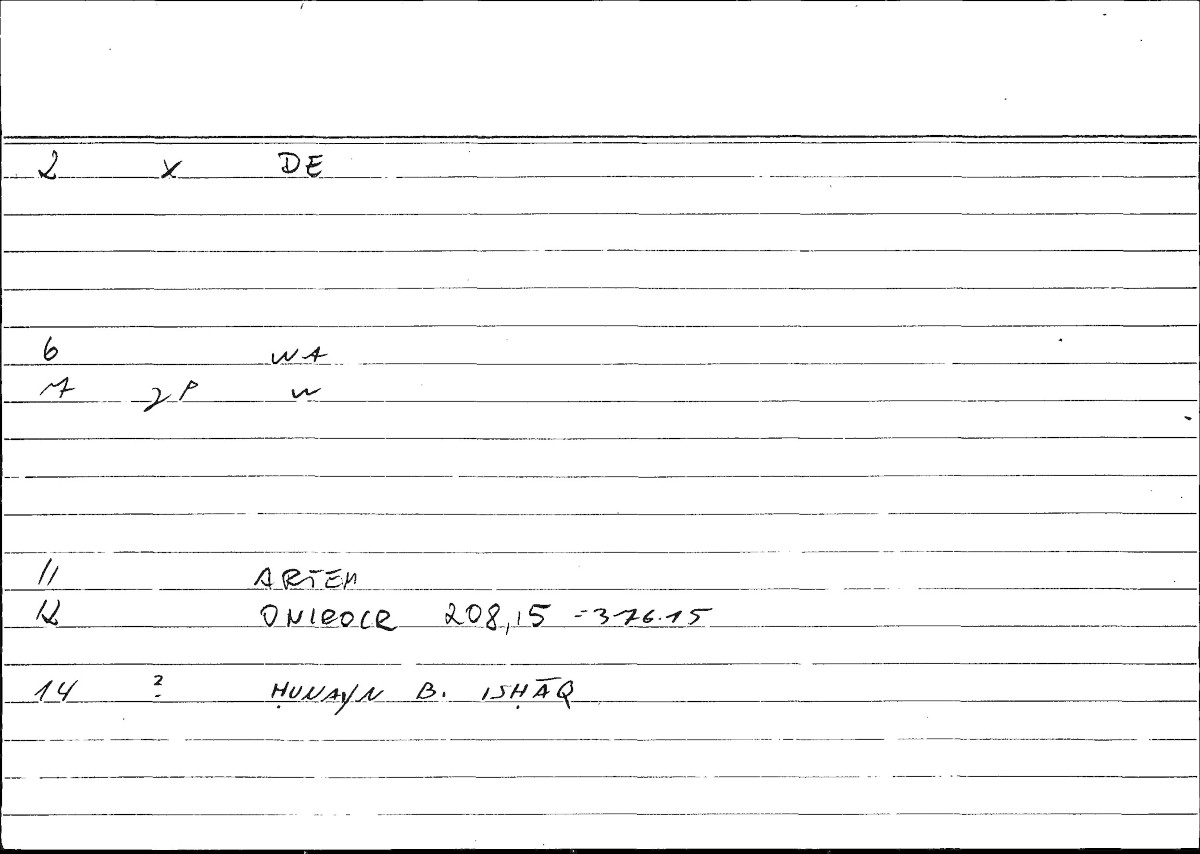 2 x DE
6 WA
7 2P W
11 ARTEM
12 ONIROCR 208,15 =376.15
14 ? ḤUNAYN B. ISḤĀQ